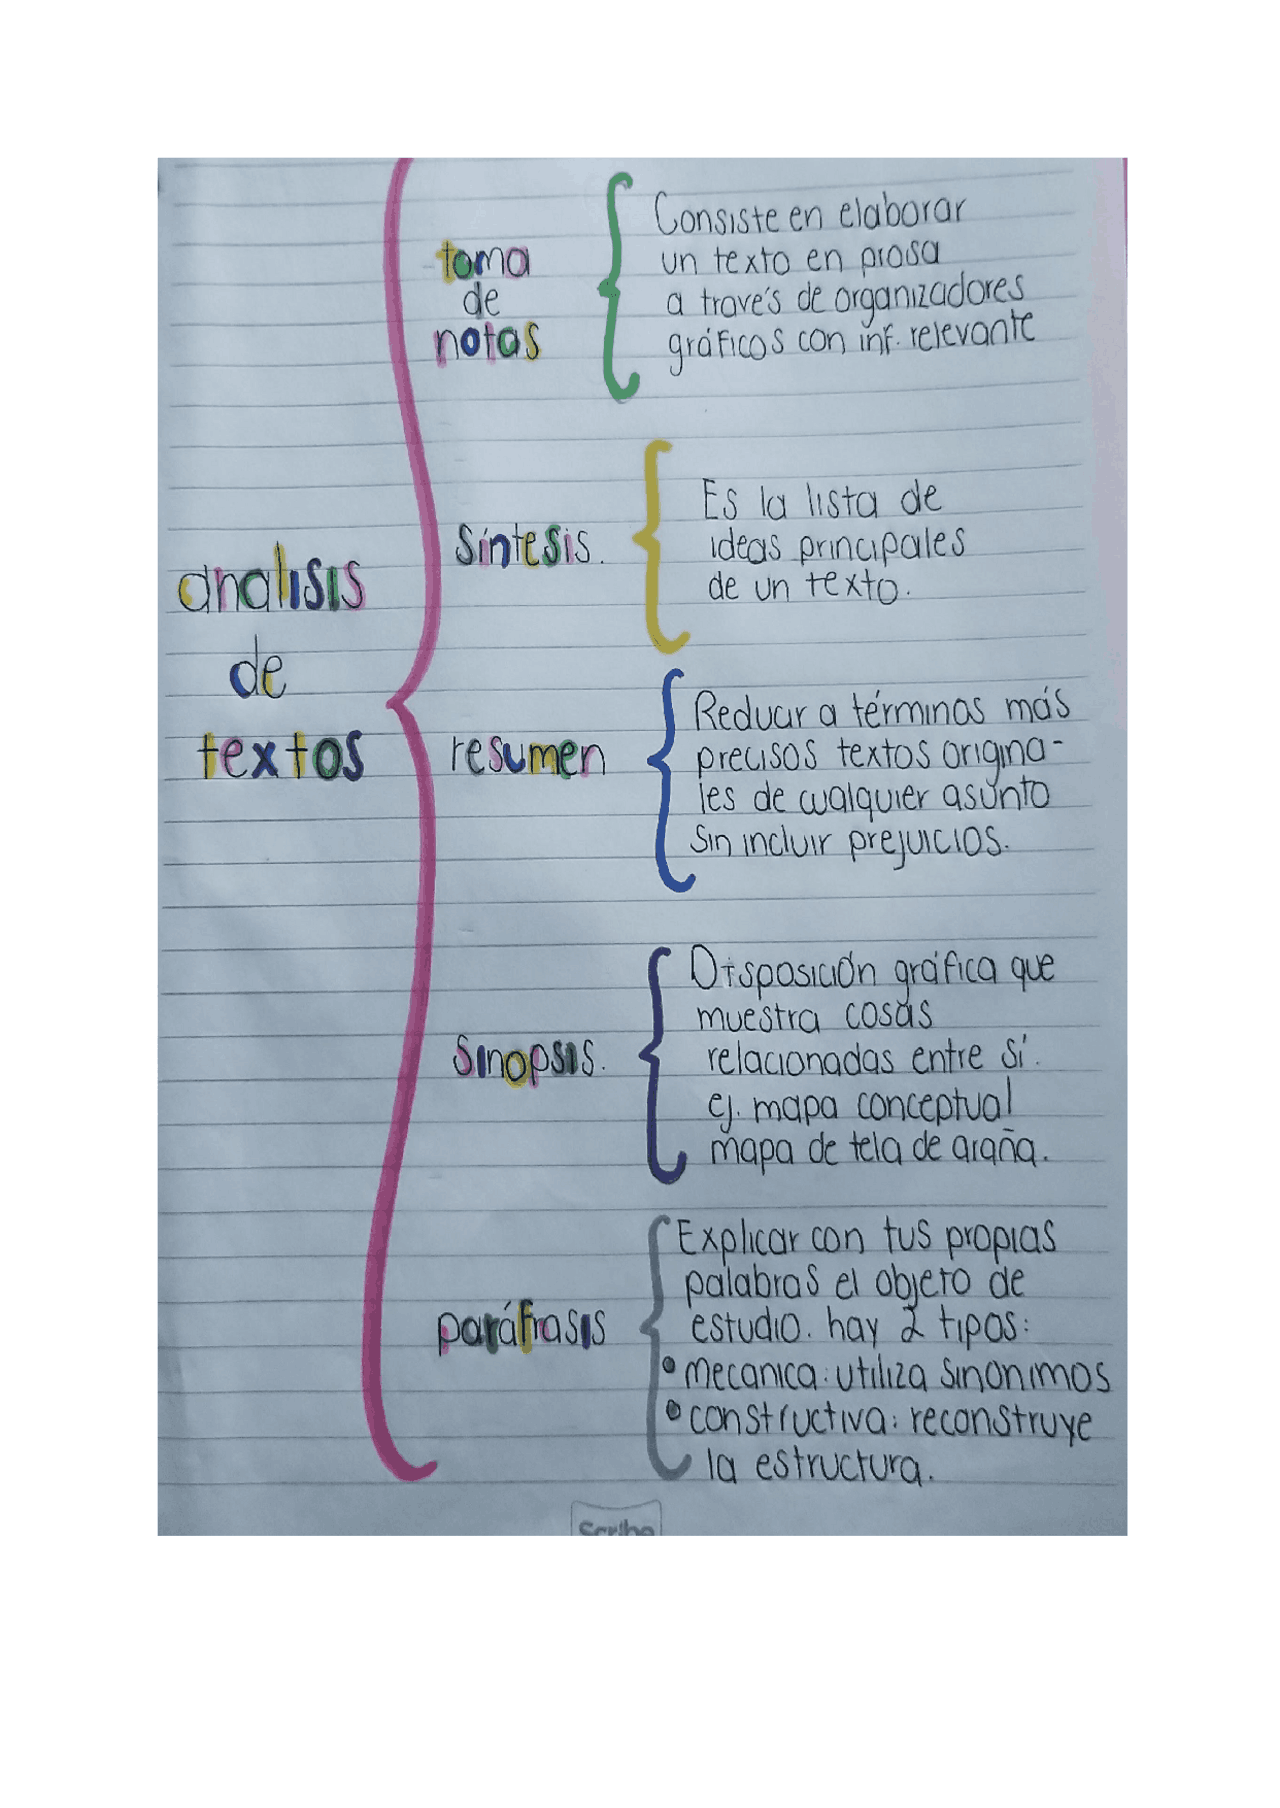 toma
de
notas
Consiste en elaborar
un texto en prosa
a través de organizadores
gráficos con inf. relevante
síntesis.
Es la lista de
ideas principales
de un texto.
analisis
de
textos
resumen
Reducir a términos más
precisos textos origina-
les de cualquier asunto
sin incluir prejuicios.
sinopsis.
Disposición gráfica que
muestra cosas
relacionadas entre sí.
ej. mapa conceptual
mapa de tela de araña.
paráfrasis
Explicar con tus propias
palabras el objeto de
estudio. hay 2 tipos:
• mecanica: utiliza sinonimos
• constructiva: reconstruye
la estructura.
Scribe